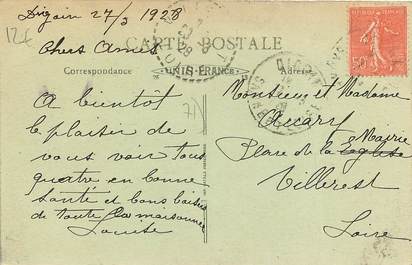 Digoin 27/3 1928
12 f
Chers Amis
CARTE POSTALE
Correspondance
UNIS-FRANCE
Adresse
50
71
A bientôt
le plaisir de
vous voir tous
quatre en bonne
santé et bons baisers
de toute la maisonnée
Louise
Monsieur et Madame
Place de la Eglise
Mairie
Villerest
Loire